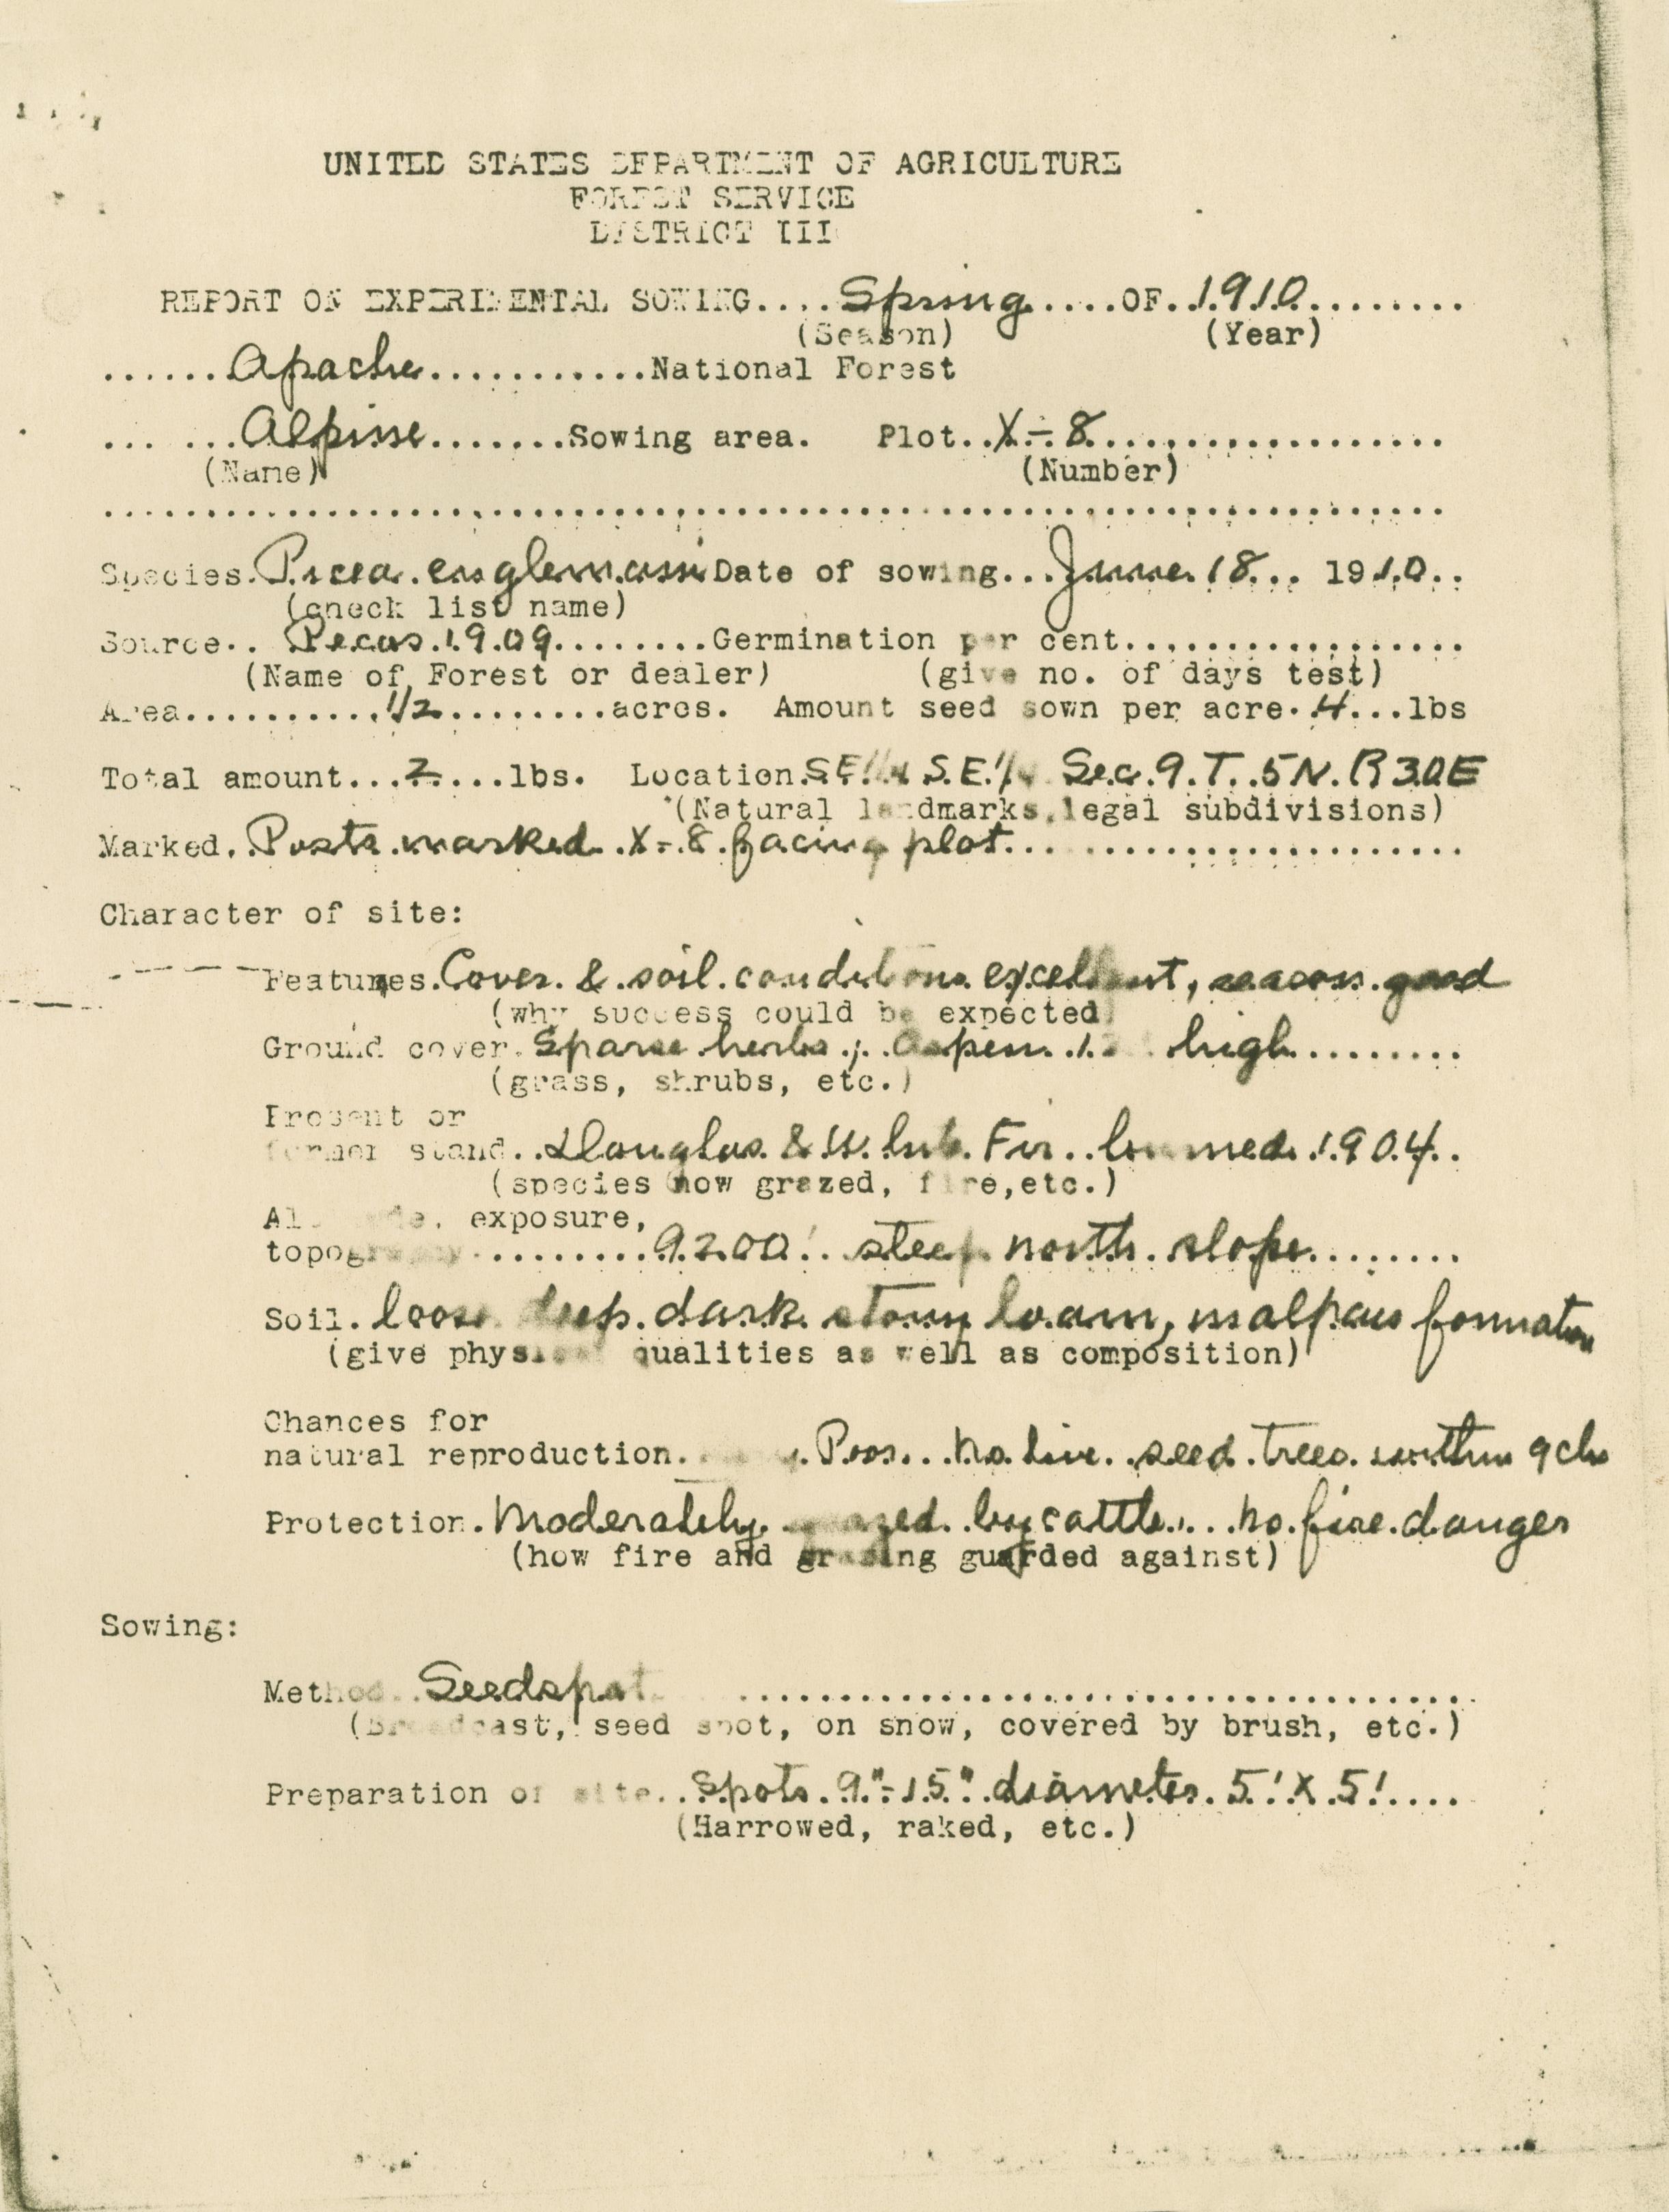 UNITED STATES DEPARTMENT OF AGRICULTURE
FOREST SERVICE
DISTRICT III
REPORT ON EXPERIMENTAL SOWING....Spring.....OF.1910........
(Season) (Year)
......Apache...........National Forest
... ...Alpine.......Sowing area. Plot..X-8.................
(Name) (Number)
Species.Picea englemanni Date of sowing...June 18... 1910..
(check list name)
Source.. Pecos 1909........Germination per cent.................
(Name of Forest or dealer) (give no. of days test)
Area..........1/2........acres. Amount seed sown per acre. 4...lbs
Total amount...2....lbs. Location.SE1/4 S.E.1/4 Sec. 9. T. 5N. R30E
(Natural landmarks, legal subdivisions)
Marked. Posts marked X-8 facing plot......................
Character of site:
Features. Cover & soil conditions excellent, season good
(why success could be expected)
Ground cover. Sparse herbs; Aspen high.........
(grass, shrubs, etc.)
Present or
former stand..Douglas & Fir.. burned 1904..
(species how grazed, fire,etc.)
Altitude, exposure,
topography.........9200'.. steep north slope........
Soil. loose deep dark stony loam, malpais formation
(give physical qualities as well as composition)
Chances for
natural reproduction. Poor...No live seed trees within 9 chs
Protection. Moderately grazed by cattle....No fire danger
(how fire and grazing guarded against)
Sowing:
Method..Seedspot ...................................
(Broadcast, seed spot, on snow, covered by brush, etc.)
Preparation of site..Spots 9"-15" diameter. 5'X 5'....
(Harrowed, raked, etc.)